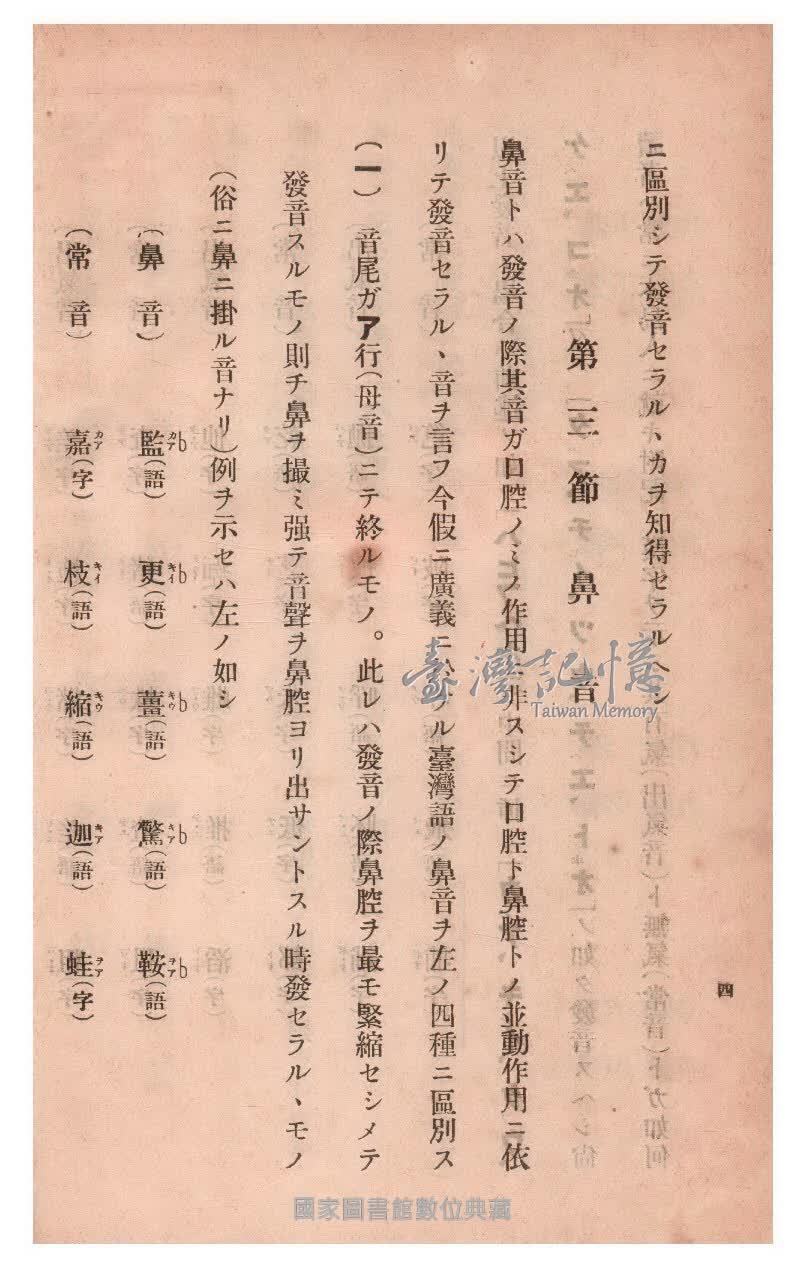 四
ニ區別シテ發音セラルヽカヲ知得セラルヘシ
第三節 鼻音
鼻音トハ發音ノ際其音ガ口腔ノミノ作用ニ非スシテ口腔ト鼻腔トノ並動作用ニ依
リテ發音セラルヽ音ヲ言フ今假ニ廣義ニ於ケル臺灣語ノ鼻音ヲ左ノ四種ニ區別ス
(一) 音尾ガア行(母音)ニテ終ルモノ。此レハ發音ノ際鼻腔ヲ最モ緊縮セシメテ
發音スルモノ則チ鼻ヲ撮ミ强テ音聲ヲ鼻腔ヨリ出サントスル時發セラルヽモノ
(俗ニ鼻ニ掛ル音ナリ)例ヲ示セハ左ノ如シ
(鼻音) 監カア(語) 更キイ(語) 薑キウ(語) 驚キア(語) 鞍ヲア(語)
(常音) 嘉カア(字) 枝キイ(語) 縮キウ(語) 迦キア(語) 蛙ヲア(字)
臺灣記憶
Taiwan Memory
國家圖書館數位典藏